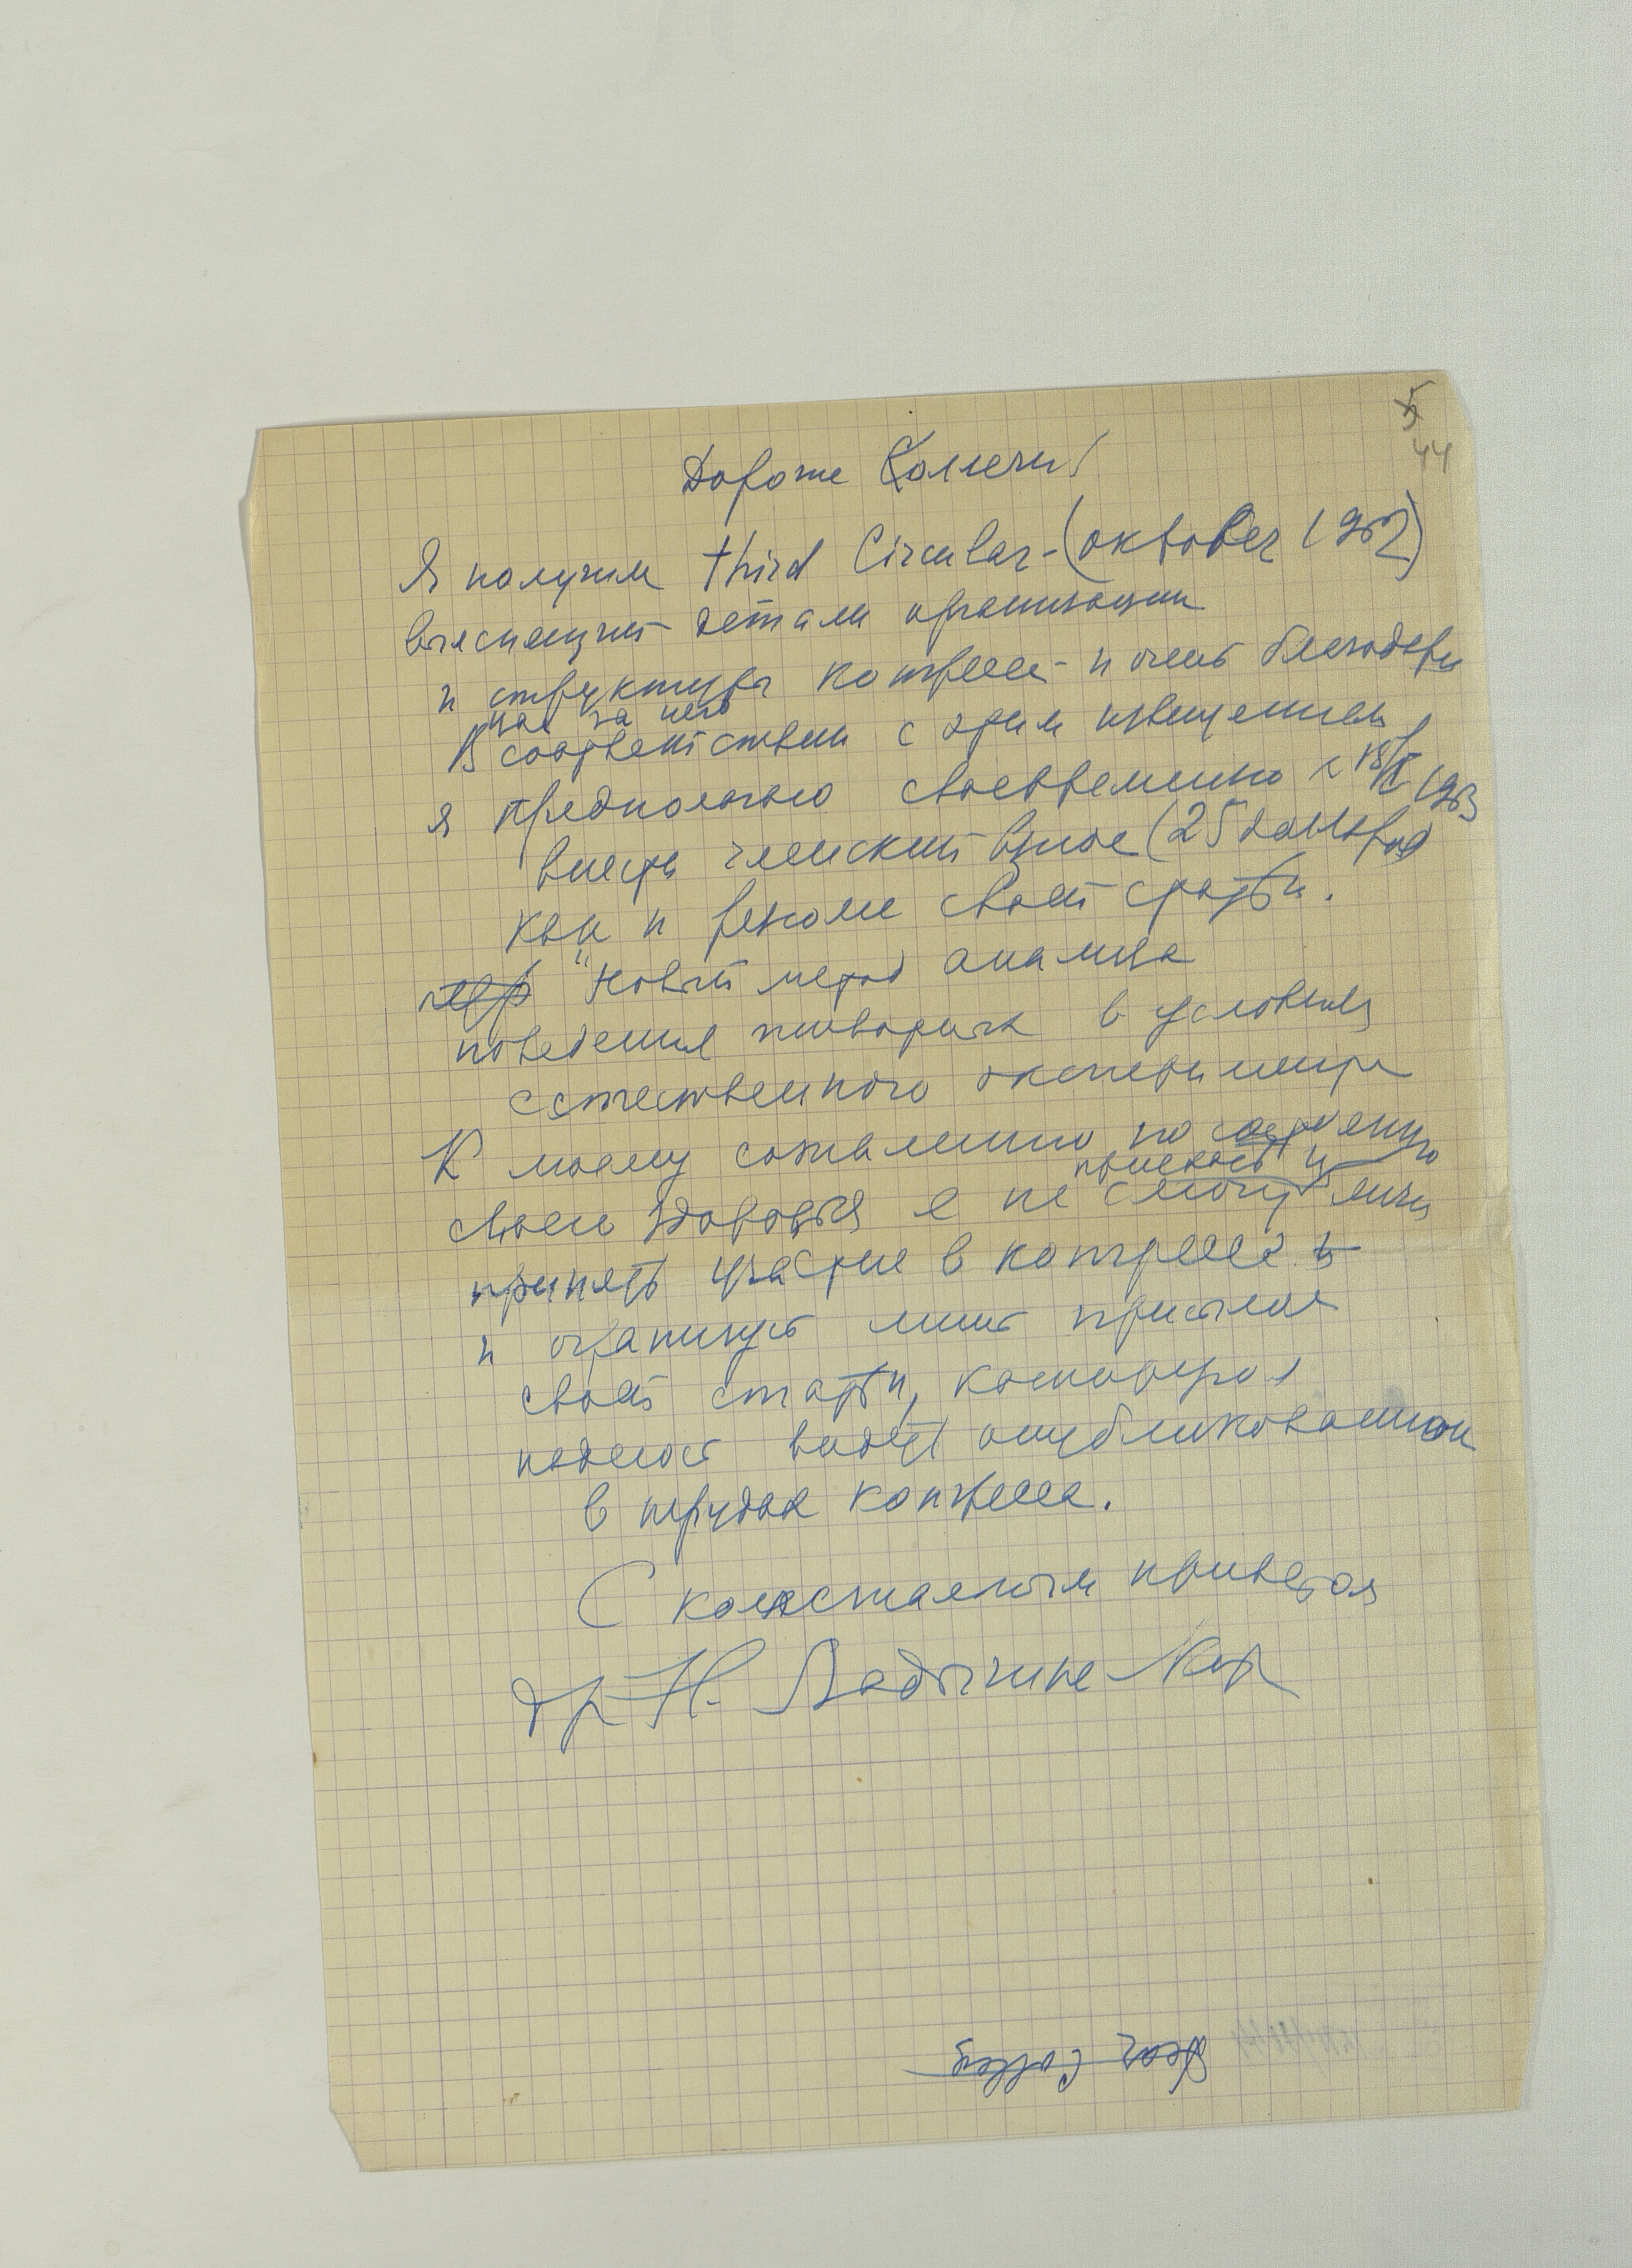 5
44
Дорогие Коллеги!
Я получил third Circular-(oktober 1962)
выясняющий детали организации
и структуры конгресса - и очень благодарю
вас за него
В соответствии с этим извещением
я предполагаю своевременно к 18/ 1963
внести членский взнос (25 долларов)
как и резюме своей статьи.
"Новый метод анализа
поведения животных в условиях
естественного эксперимента
К моему сожалению по состоянию
приехать и
своего здоровья я не смогу лично
принять участие в конгрессе
и ограничусь лишь присылкой
своей статьи, которая
надеюсь будет опубликованной
в трудах конгресса.
С приветом
др Н. Ладыгина-Котс